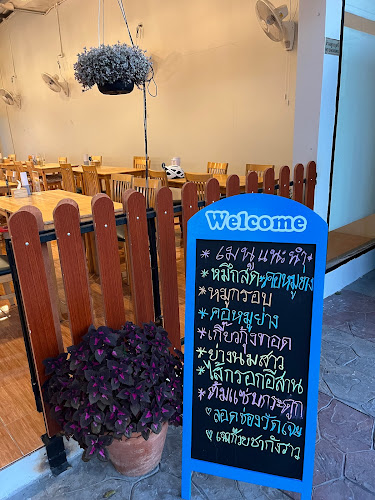 Welcome
* เมนูแนะนำ *
* หมึกสด+คอหมูย่าง
* หมูกรอบ
* คอหมูย่าง
* เกี๊ยวกุ้งทอด
* ยำงนุ่มสาว
* ไส้กรอกอีสาน
* ต้มแซ่บกระดูก
ลอดช่องวัดเจษ